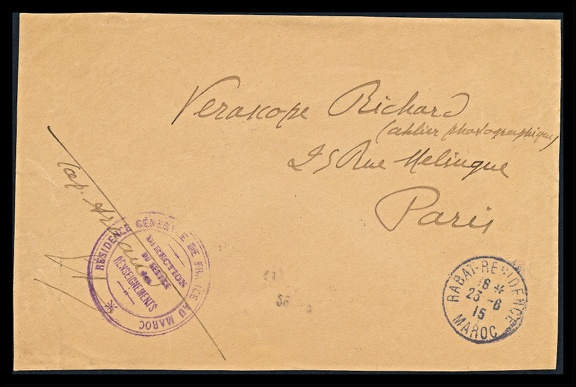 Verascope Richard
(atelier photographique)
25 Rue Melingue
Paris
RÉSIDENCE GÉNÉRALE DE FRANCE AU MAROC
DIRECTION
DU SERVICE
des
RENSEIGNEMENTS
RABAT-RÉSIDENCE
18 *
23 -6
15
MAROC